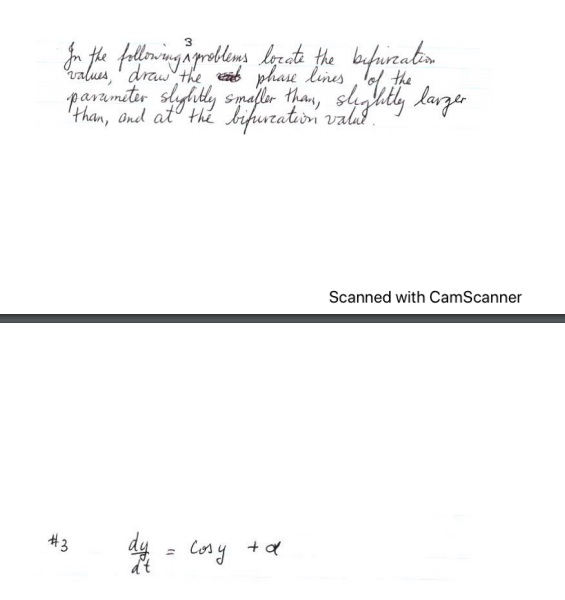 3
In the following ^ problems locate the bifurcation
values, draw the phase lines of the
parameter slightly smaller than, slightly larger
than, and at the bifurcation value.
Scanned with CamScanner
#3 dy/dt = Cos y + α